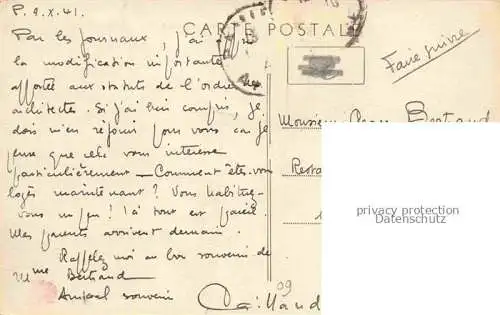 P. 9.X.41.
CARTE POSTALE
Faire suivre
Par les journaux, j'ai
la modification importante
apportée aux statuts de l'ordre des
architectes. Si j'ai bien compris, je
dois m'en réjouir pour vous car je
pense que cela vous intéresse
particulièrement - Comment êtes-vous
logés maintenant ? Vous habituez-
vous un peu ! Ici tout est pareil.
Mes parents arrivent demain.
Rappelez moi au bon souvenir de
Mme Bertrand
Amical souvenir
Monsieur Bertrand
privacy protection
Datenschutz
09